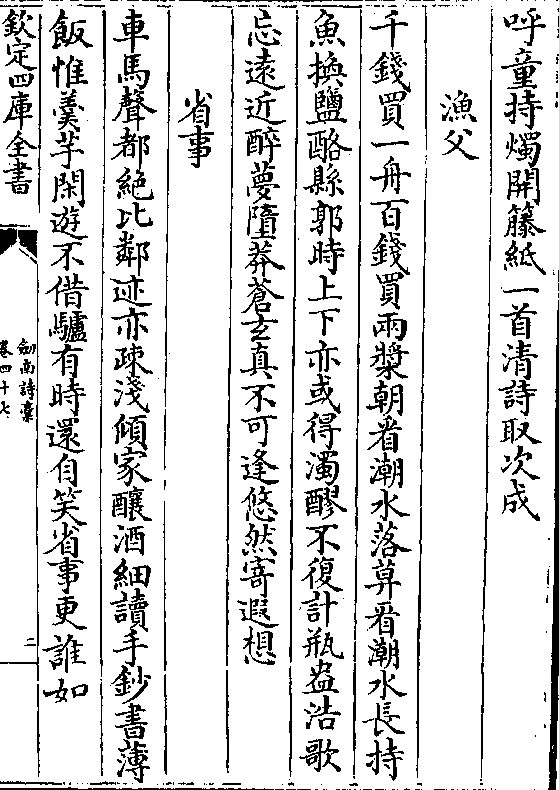 呼童持燭開籐紙一首清詩取次成
漁父
千錢買一舟百錢買兩槳朝看潮水落莫看潮水長持
魚換鹽酪縣郭時上下亦或得濁醪不復計瓶盎浩歌
忘遠近醉夢墮莽蒼玄真不可逢悠然寄遐想
省事
車馬聲都絶比鄰迹亦疎淺傾家釀酒細讀手鈔書薄
飯惟羹芋閑遊不借驢有時還自笑省事更誰如
欽定四庫全書
劍南詩藁
卷四十七
二